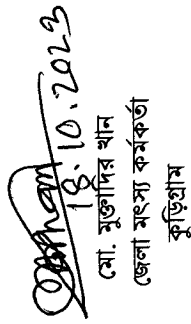 18.10.2023
মো. মুক্তাদির খান
জেলা মৎস্য কর্মকর্তা
কুড়িগ্রাম